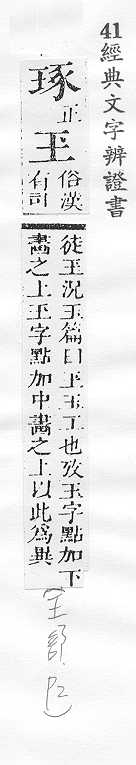 41經典文字辨證書
琢正
玊俗漢
有司
徒玊況玉篇曰玊玉工也攷玉字點加下
畵之上玊字點加中畵之上以此爲異